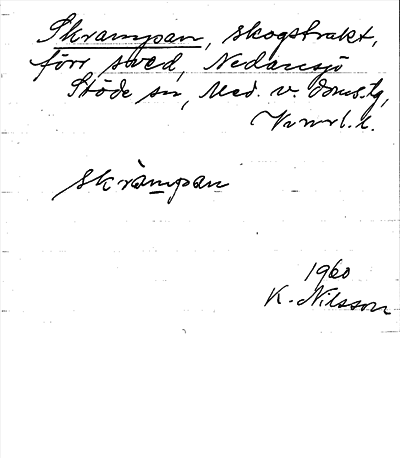 Skrampan, skogstrakt,
förr sved, Nedansjö
Stöde sn, Med. v. doms.tg,
Vnmrl. l.
skràmpan
1960
K. Nilsson